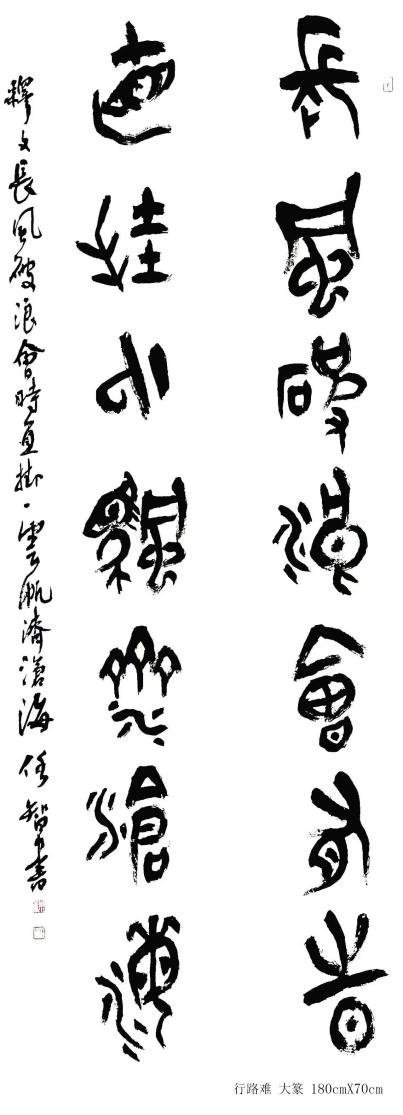 長風破浪會有時
直挂云颿濟滄海
釋文長風破浪會時直掛雲帆濟滄海 任智書
行路难 大篆 180cmX70cm